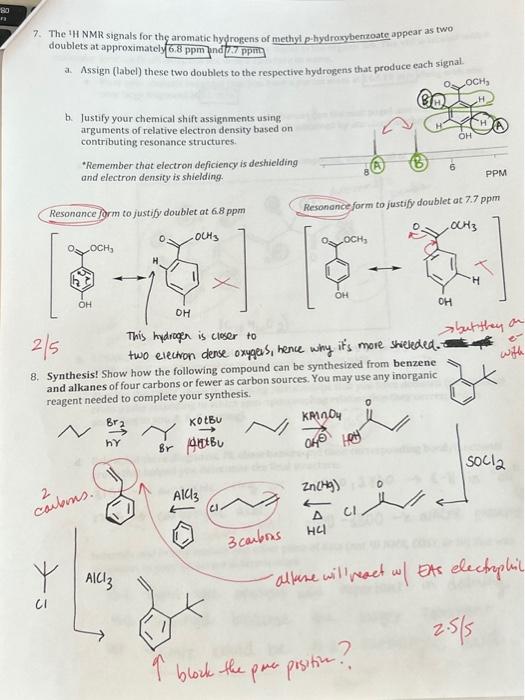 80
F3
7. The ¹H NMR signals for the aromatic hydrogens of methyl p-hydroxybenzoate appear as two
doublets at approximately 6.8 ppm and 7.7 ppm
a. Assign (label) these two doublets to the respective hydrogens that produce each signal.
O OCH₃
B H H
H H A
OH
b. Justify your chemical shift assignments using
arguments of relative electron density based on
contributing resonance structures.
*Remember that electron deficiency is deshielding
and electron density is shielding.
8 A B 6 PPM
Resonance form to justify doublet at 6.8 ppm
Resonance form to justify doublet at 7.7 ppm
O OCH₃
OH
O OCH₃
H
OH
O OCH₃
OH
O OCH₃
H
OH
2/5
This hydrogen is closer to
two electron dense oxygens, hence why it's more shielded.
→ but they
e-
with
8. Synthesis! Show how the following compound can be synthesized from benzene
and alkanes of four carbons or fewer as carbon sources. You may use any inorganic
reagent needed to complete your synthesis.
Br₂
hν
Br
KOtBu
KMnO₄
OH⊖
O
SOCl₂
2
carbons.
AlCl₃
Cl
3 carbons
Zn(Hg)
Δ
HCl
O
Cl
alkene will react w/ EAS
Cl
AlCl₃
2.5/5
↑ block the para position?